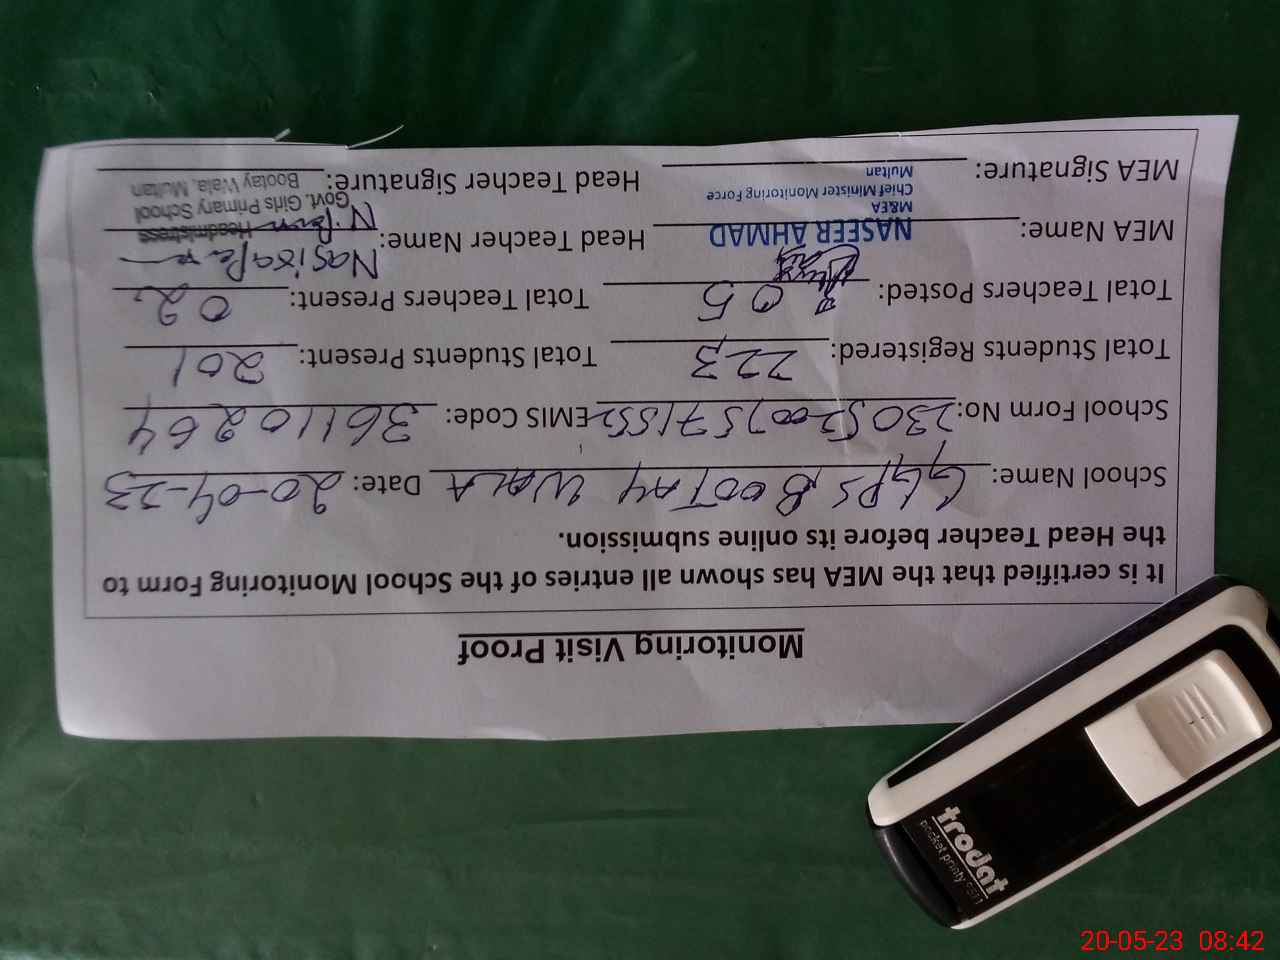 Monitoring Visit Proof
It is certified that the MEA has shown all entries of the School Monitoring Form to
the Head Teacher before its online submission.
School Name: GGPS BOOTAY WALA Date: 20-04-23
School Form No: EMIS Code: 36110264
Total Students Registered: 223 Total Students Present: 201
Total Teachers Posted: 05 Total Teachers Present: 02
MEA Name: NASEER AHMAD Head Teacher Name: Nasira
M&EA
Chief Minister Monitoring Force
Multan
Headmistress
Govt. Girls Primary School
Bootay Wala, Multan
MEA Signature: Head Teacher Signature:
trodat
pocket printy 9511
20-05-23 08:42